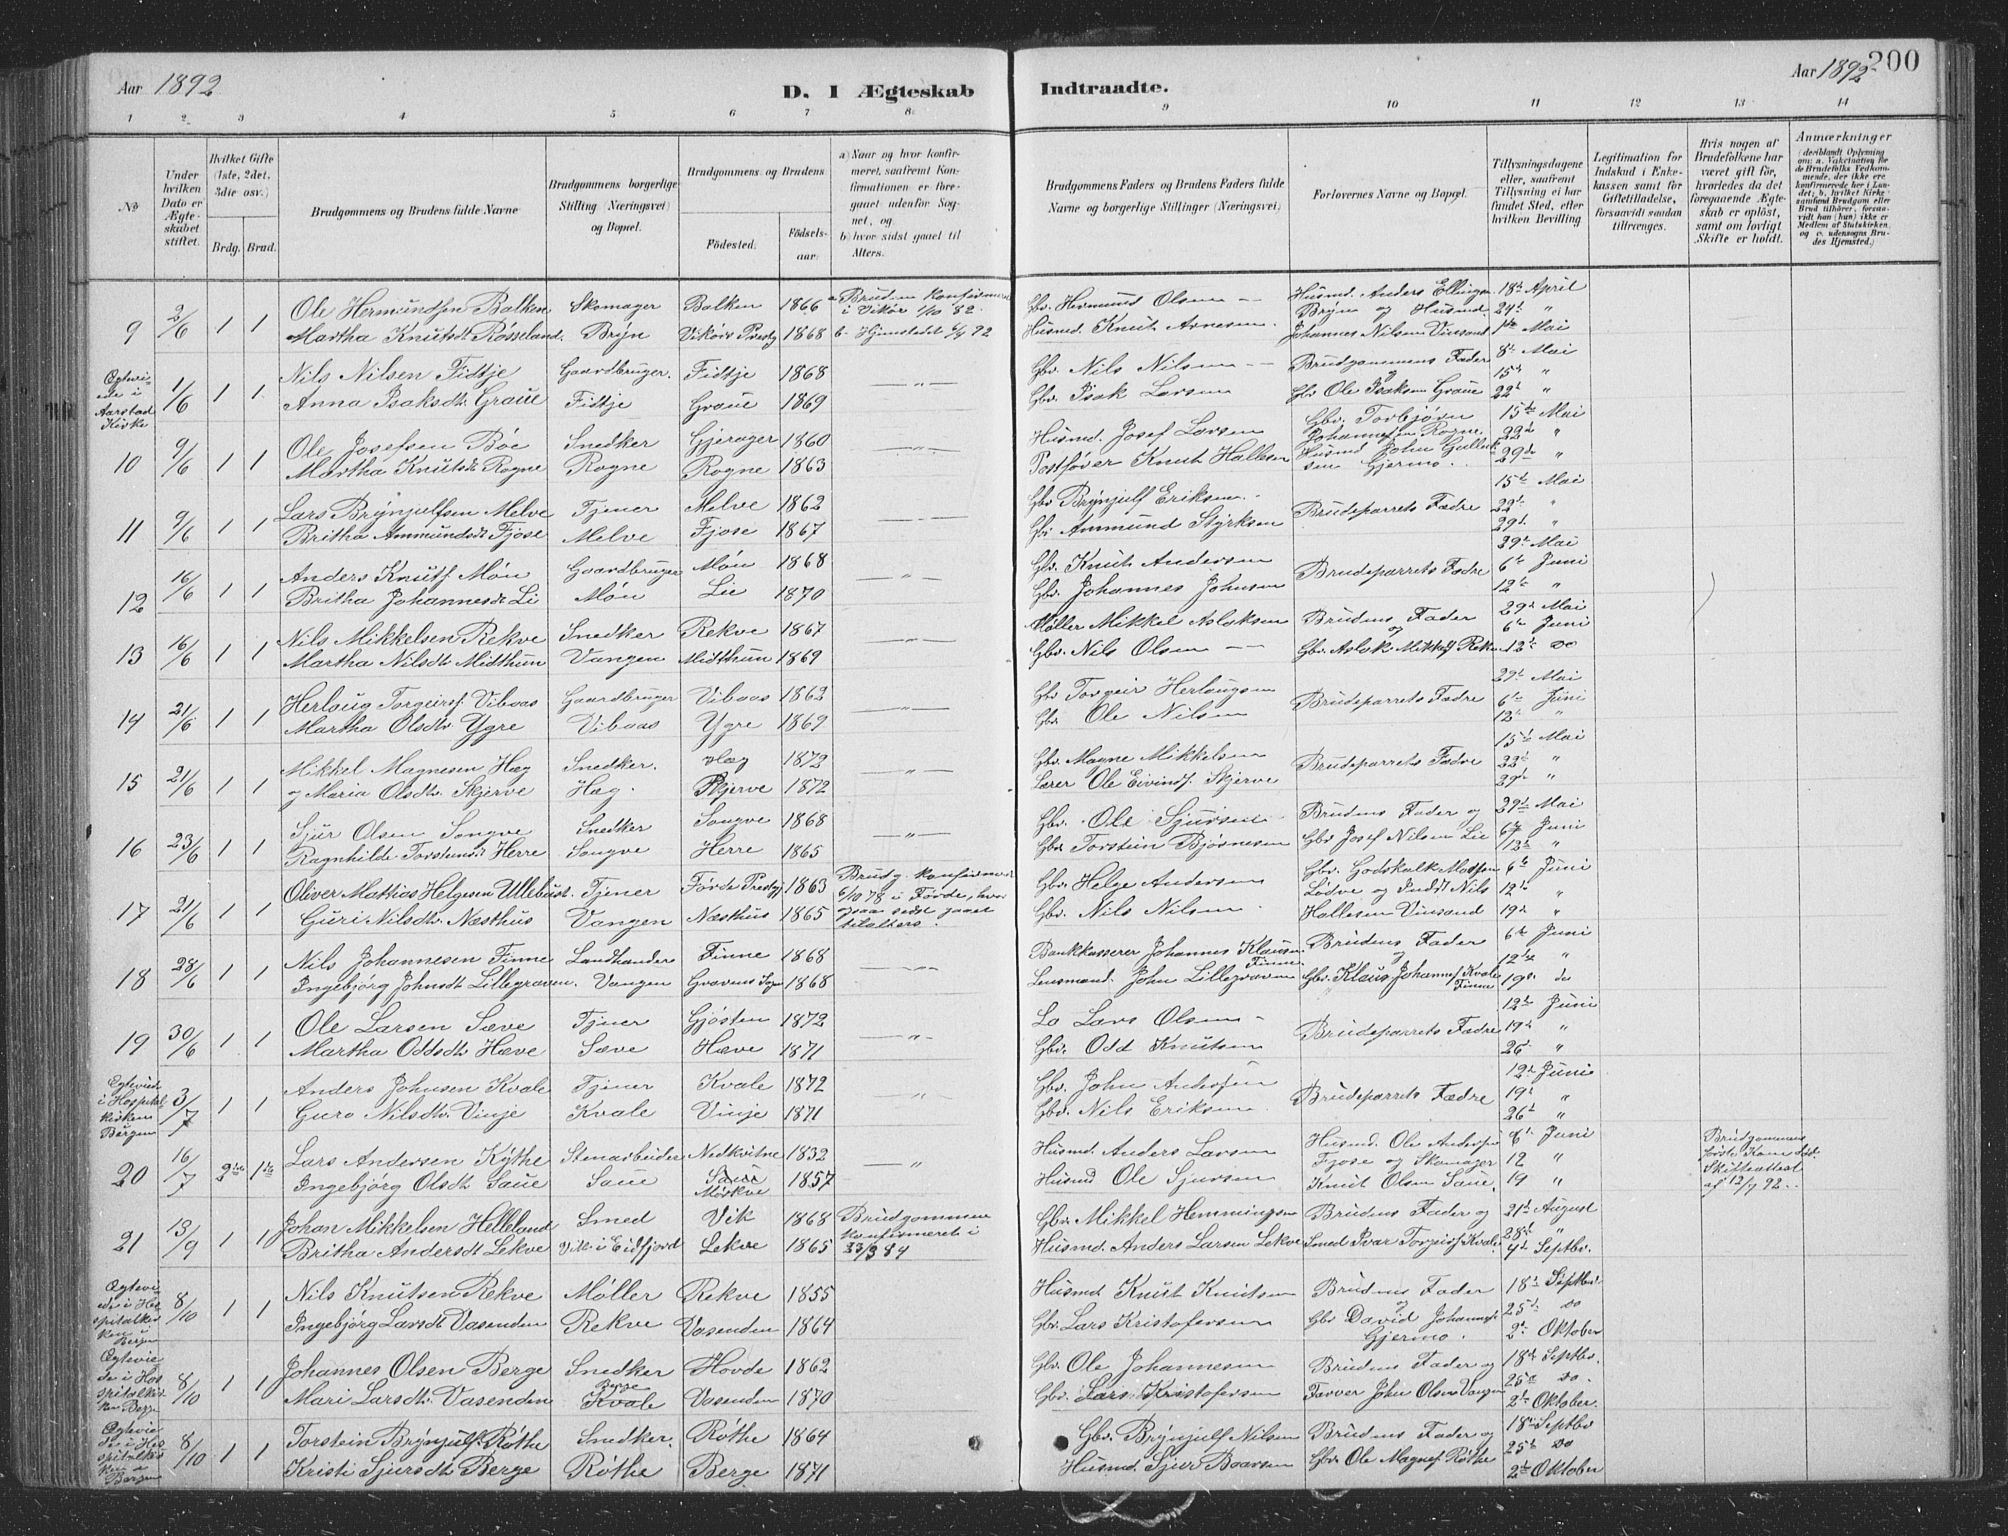 Aar 1892
D. I Ægteskab Indtraadte.
Aar 1892
200
1 2 3 4 5 6 7 8 9 10 11 12 13 14
No
Under hvilken Dato er Ægteskabet stiftet.
Hvilket Gifte (1ste, 2det, 3die osv.)
Brdg. Brud.
Brudgommens og Brudens fulde Navne
Brudgommens borgerlige Stilling (Næringsvei) og Bopæl.
Brudgommens og Brudens
Födested. Födselsaar.
a) Naar og hvor konfirmeret, saafremt Konfirmationen er foregaaet udenför Sognet, og
b) hvor sidst gaaet til Alters.
Brudgommens Faders og Brudens Faders fulde Navne og borgerlige Stillinger (Næringsvei)
Forlovernes Navne og Bopæl.
Tillysningsdagene eller, saafremt Tillysning ei har fundet Sted, efter hvilken Bevilling
Legitimation for Indskud i Enkekassen samt for Giftetilladelse, forsaavidt saadan tiltrænges.
Hvis nogen af Brudefolkene har været gift før, hvorledes da det foregaaende Ægteskab er oplöst, samt om lovligt Skifte er holdt.
Anmærkninger
(deriblandt Oplysning om: a. Vakcination for de Brudefolks Vedkommende, der ikke ere konfirmerede her i Landet; b. hvilket Kirkesamfund Brudgom eller Brud tilhörer, forsaavidt han (hun) ikke er Medlem af Statskirken, og c. udensogns Brudes Hjemsted.)
9 2/6 1 1 Ole Hermundsen Balken Skomager Balken 1866 a Bruden konfirmeret Gbr. Hermund Olsen Husmd. Anders Ellingsen 18de April
Martha Knutsdt. Røsseland. Bryn Vikørs Prestg 1868 i Vikør 1/10 82. Husmd. Knut Arnesen. Bryn og Husmd. 24d "
b. Hjemstedet 92 Johannes Nilsen Vinsand 1ste Mai
Ægteviede i Aarstad Kirke 1/6 1 1 Nils Nilsen Fidtje Gaardbruger. Fidtje 1868 " Gbr. Nils Nilsen Brudgommens Fader 8de Mai
og 15d "
Anna Isaksdt. Graue Fidtje Graue 1869 Gbr. Isak Larsen Gbr. Ole Isaksen Graue 22d "
10 9/6 1 1 Ole Josefsen Bøe Snedker Gjerager 1860 " Husmd. Josef Larsen Gbr. Torbjørn 15de Mai
Johannesen Rogne, 22d "
Martha Knutsdt. Rogne Rogne Rogne 1863 Postfører Knut Hallesen Husmd John Gulleiksen Gjermo. 29de "
11 9/6 1 1 Lars Brynjulfsen Melve Tjener Melve 1862 " Gbr Brynjulf Eriksen. Brudeparrets Fædre 15de Mai
22d "
Britha Ammundsdt. Fjose Melve Fjose 1867 Gbr. Ammund Styrksen 29d "
12 16/6 1 1 Anders Knuts. Møn Gaardbruger Møn 1868 " Gbr. Knut Andersen Brudeparrets Fædre 29de Mai
6te Juni
Britha Johannesdt. Li Møn Lie 1870 Gbr. Johannes Johnsen 12te "
13 16/6 1 1 Nils Mikkelsen Rekve Snedker Rekve 1867 " Møller Mikkel Aslaksen Brudens Fader 29d Mai
og 6te Juni
Martha Nilsdt. Midthun Vangen Midthun 1869 Gbr. Nils Olsen Gbr. Aslak Mikkels. Rekve 12te do
14 21/6 1 1 Herlaug Torgeirs. Vibaas Gaardbruger Vibaas 1862 " Gbr Torgeir Herlaugsen Brudeparrets Fædre 29de Mai
6te Juni
Martha Olsdtr Ygre Vibaas Ygre 1869 Gbr. Ole Nilsen 12te "
15 21/6 1 1 Mikkel Magnesen Hæg Snedker. Hæg 1872 " Gbr. Magne Mikkelsen Brudeparrets Fædre 15d Mai
22de "
og Maria Olsdtr. Skjerve Hæg. Skjerve 1872 Lærer Ole Eivinds. Skjerve 29de "
16 23/6 1 1 Sjur Olsen Songve Snedker Songve 1868 " Gbr. Ole Sjursen Brudens Fader og 29d Mai
6te Juni
Ragnhilde Torsteinsdt. Herre Songve Herre 1865 Gbr. Torstein Bjørnesen Gbr. Josef Nilsen Lie 12te "
17 21/6 1 1 Oliver Mathias Helgesen Ullebust. Tjener Førde Prestgj 1863 Brudg. konfirmeret Gbr. Helge Andersen Gbr. Godskalk Madsen 6te Juni
6/10 78 i Førde, hvor Lødve og Indst Nils 12te
Guri Nilsdtr. Næsthus Vangen Næsthus 1865 ogsaa sidst gaaet tilalters. Gbr. Nils Nilsen. Hallesen Vinsand 19d "
18 28/6 1 1 Nils Johannesen Finne Landhandler Finne 1868 " Bankkasserer Johannes Klausen Finne Brudens Fader 6te Juni
og 12te "
Ingebjørg Johnsdt. Lillegraven. Vangen Gravens Sogn 1868 Lensmand. John Lillegraven Gbr. Klaus Johannes. Kvale Finne 19d do
19 30/6 1 1 Ole Larsen Sæve Tjener Gjøsten 1872 " Lo Lars Olsen Brudeparrets Fædre 12te Juni
19d "
Martha Oddsdt. Hæve Sæve Hæve 1871 Gbr. Odd Knutsen 26d "
Ægteviet i Hospitalkirken Bergen 3/7 1 1 Anders Johnsen Kvale Tjener Kvale 1872 Gbr. John Andersen Brudeparrets Fædre 12te Juni
19d "
Guro Nilsdtr. Vinje Kvale Vinje 1871 Gbr. Nils Eriksen. 26d "
20 16/7 2det 1ste Lars Andersen Kythe Stenarbeider Nedkvitne 1832 " Husmd. Anders Larsen Husmd. Ole Anderss. 6te Juni Brudgommens
Fjose og Skomager 12 " første Kone død.
Ingebjørg Olsdt. Saue Saue Saue Mørkve 1857 Husmd Ole Sjursen Knut Olsen Saue. 19 " Skifteattest af 12/7 92.
21 13/9 1 1 Johan Mikkelsen Helleland Smed Vik 1868 Brudgommen Gbr. Mikkel Hemmingsen Brudens Fader og 21de August
konfirmeret i 28d "
Britha Andersdt. Lekve Vik i Eidfjord Lekve 1865 23/9 84 Husmd. Anders Larsen Lekve Smed Ivar Torgeirs. Kvale 4d Septbr.
Ægteviede i Hospitalkirken i Bergen 8/10 1 1 Nils Knutsen Rekve Møller Rekve 1855 Husmd Knut Knutsen Brudens Fader 18d Septbr.
og 25d do
Ingebjørg Larsdt. Vasenden Rekve Vasenden 1864 Gbr. Lars Kristofersen Gbr David Johannes. Gjermo. 2d Oktober
Ægteviede i Hospitalkirken Bergen 8/10 1 1 Johannes Olsen Berge Snedker Hovde 1862 Gbr. Ole Johannesen Brudens Fader og 18de Septbr.
25d do.
Mari Larsdtr. Vasenden Berge Kvale Vasenden 1870 Gbr. Lars Kristofersen Farver John Olsen Vangen 2d Oktober.
Ægteviede i Hospitalkirken Bergen 8/10 1 1 Torstein Brynjulfs. Røthe Snedker. Røthe 1864 Gbr. Brynjulf Nilsen Brudens Fader og 18d Septbr
25de do
Kristi Sjursdt. Berge Røthe Berge 1871 Husmd. Sjur Baarsen Gbr. Ole Magnes. Røthe 2de Oktober